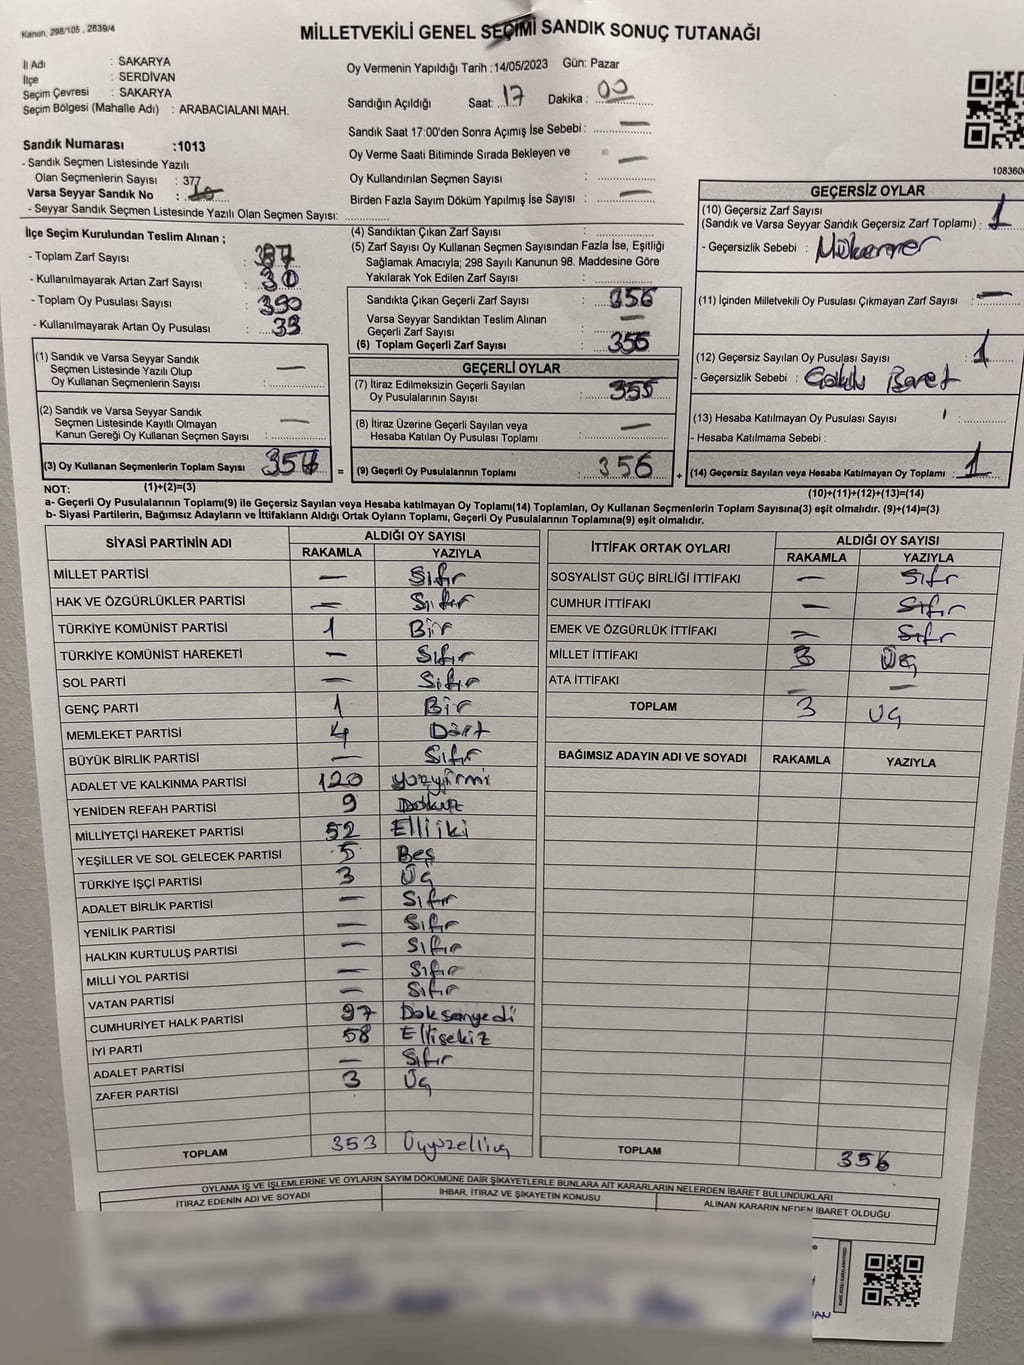 Kanun, 298/105 , 2839/4
MİLLETVEKİLİ GENEL SEÇİMİ SANDIK SONUÇ TUTANAĞI
İl Adı : SAKARYA
İlçe : SERDİVAN
Seçim Çevresi : SAKARYA
Seçim Bölgesi (Mahalle Adı) : ARABACIALANI MAH.
Oy Vermenin Yapıldığı Tarih :14/05/2023 Gün: Pazar
Sandığın Açıldığı Saat: 17 Dakika : 00
Sandık Saat 17:00'den Sonra Açımış İse Sebebi : —
Oy Verme Saati Bitiminde Sırada Bekleyen ve
Oy Kullandırılan Seçmen Sayısı : —
Birden Fazla Sayım Döküm Yapılmış İse Sayısı : —
Sandık Numarası :1013
- Sandık Seçmen Listesinde Yazılı
Olan Seçmenlerin Sayısı : 377
Varsa Seyyar Sandık No :
- Seyyar Sandık Seçmen Listesinde Yazılı Olan Seçmen Sayısı:
108360
İlçe Seçim Kurulundan Teslim Alınan ;
- Toplam Zarf Sayısı : 387
- Kullanılmayarak Artan Zarf Sayısı : 30
- Toplam Oy Pusulası Sayısı : 390
- Kullanılmayarak Artan Oy Pusulası : 33
(1) Sandık ve Varsa Seyyar Sandık
Seçmen Listesinde Yazılı Olup
Oy Kullanan Seçmenlerin Sayısı : —
(2) Sandık ve Varsa Seyyar Sandık
Seçmen Listesinde Kayıtlı Olmayan
Kanun Gereği Oy Kullanan Seçmen Sayısı : —
(3) Oy Kullanan Seçmenlerin Toplam Sayısı
(1)+(2)=(3)
(4) Sandıktan Çıkan Zarf Sayısı :
(5) Zarf Sayısı Oy Kullanan Seçmen Sayısından Fazla İse, Eşitliği
Sağlamak Amacıyla; 298 Sayılı Kanunun 98. Maddesine Göre
Yakılarak Yok Edilen Zarf Sayısı :
Sandıkta Çıkan Geçerli Zarf Sayısı : 356
Varsa Seyyar Sandıktan Teslim Alınan
Geçerli Zarf Sayısı : —
(6) Toplam Geçerli Zarf Sayısı : 356
GEÇERLİ OYLAR
(7) İtiraz Edilmeksizin Geçerli Sayılan
Oy Pusulalarının Sayısı : 355
(8) İtiraz Üzerine Geçerli Sayılan veya
Hesaba Katılan Oy Pusulası Toplamı : —
= (9) Geçerli Oy Pusulalarının Toplamı : 356 +
GEÇERSİZ OYLAR
(10) Geçersiz Zarf Sayısı
(Sandık ve Varsa Seyyar Sandık Geçersiz Zarf Toplamı) : 1
- Geçersizlik Sebebi : Mükerrer
(11) İçinden Milletvekili Oy Pusulası Çıkmayan Zarf Sayısı : —
(12) Geçersiz Sayılan Oy Pusulası Sayısı : 1
- Geçersizlik Sebebi :
(13) Hesaba Katılmayan Oy Pusulası Sayısı :
- Hesaba Katılmama Sebebi :
(14) Geçersiz Sayılan veya Hesaba Katılmayan Oy Toplamı : 1
(10)+(11)+(12)+(13)=(14)
NOT:
a- Geçerli Oy Pusulalarının Toplamı(9) ile Geçersiz Sayılan veya Hesaba katılmayan Oy Toplamı(14) Toplamları, Oy Kullanan Seçmenlerin Toplam Sayısına(3) eşit olmalıdır. (9)+(14)=(3)
b- Siyasi Partilerin, Bağımsız Adayların ve İttifakların Aldığı Ortak Oyların Toplamı, Geçerli Oy Pusulalarının Toplamına(9) eşit olmalıdır.
SİYASİ PARTİNİN ADI ALDIĞI OY SAYISI
RAKAMLA YAZIYLA
MİLLET PARTİSİ — Sıfır
HAK VE ÖZGÜRLÜKLER PARTİSİ — Sıfır
TÜRKİYE KOMÜNİST PARTİSİ 1 Bir
TÜRKİYE KOMÜNİST HAREKETİ — Sıfır
SOL PARTİ — Sıfır
GENÇ PARTİ 1 Bir
MEMLEKET PARTİSİ 4 Dört
BÜYÜK BİRLİK PARTİSİ — Sıfır
ADALET VE KALKINMA PARTİSİ 120 yüzyirmi
YENİDEN REFAH PARTİSİ 9 Dokuz
MİLLİYETÇİ HAREKET PARTİSİ 52 Elliiki
YEŞİLLER VE SOL GELECEK PARTİSİ 5 Beş
TÜRKİYE İŞÇİ PARTİSİ 3 Üç
ADALET BİRLİK PARTİSİ — Sıfır
YENİLİK PARTİSİ — Sıfır
HALKIN KURTULUŞ PARTİSİ — Sıfır
MİLLİ YOL PARTİSİ — Sıfır
VATAN PARTİSİ — Sıfır
CUMHURİYET HALK PARTİSİ 97 Doksanyedi
İYİ PARTİ 58 Ellisekiz
ADALET PARTİSİ — Sıfır
ZAFER PARTİSİ 3 Üç
TOPLAM 353 Üçyüzelliüç
İTTİFAK ORTAK OYLARI ALDIĞI OY SAYISI
RAKAMLA YAZIYLA
SOSYALİST GÜÇ BİRLİĞİ İTTİFAKI — Sıfr
CUMHUR İTTİFAKI — Sıfır
EMEK VE ÖZGÜRLÜK İTTİFAKI — Sıfr
MİLLET İTTİFAKI 3 Üç
ATA İTTİFAKI — —
TOPLAM 3 Üç
BAĞIMSIZ ADAYIN ADI VE SOYADI RAKAMLA YAZIYLA
TOPLAM 356
OYLAMA İŞ VE İŞLEMLERİNE VE OYLARIN SAYIM DÖKÜMÜNE DAİR ŞİKAYETLERLE BUNLARA AİT KARARLARIN NELERDEN İBARET BULUNDUKLARI
İTİRAZ EDENİN ADI VE SOYADI
İHBAR, İTİRAZ VE ŞİKAYETİN KONUSU
ALINAN KARARIN NEDEN İBARET OLDUĞU